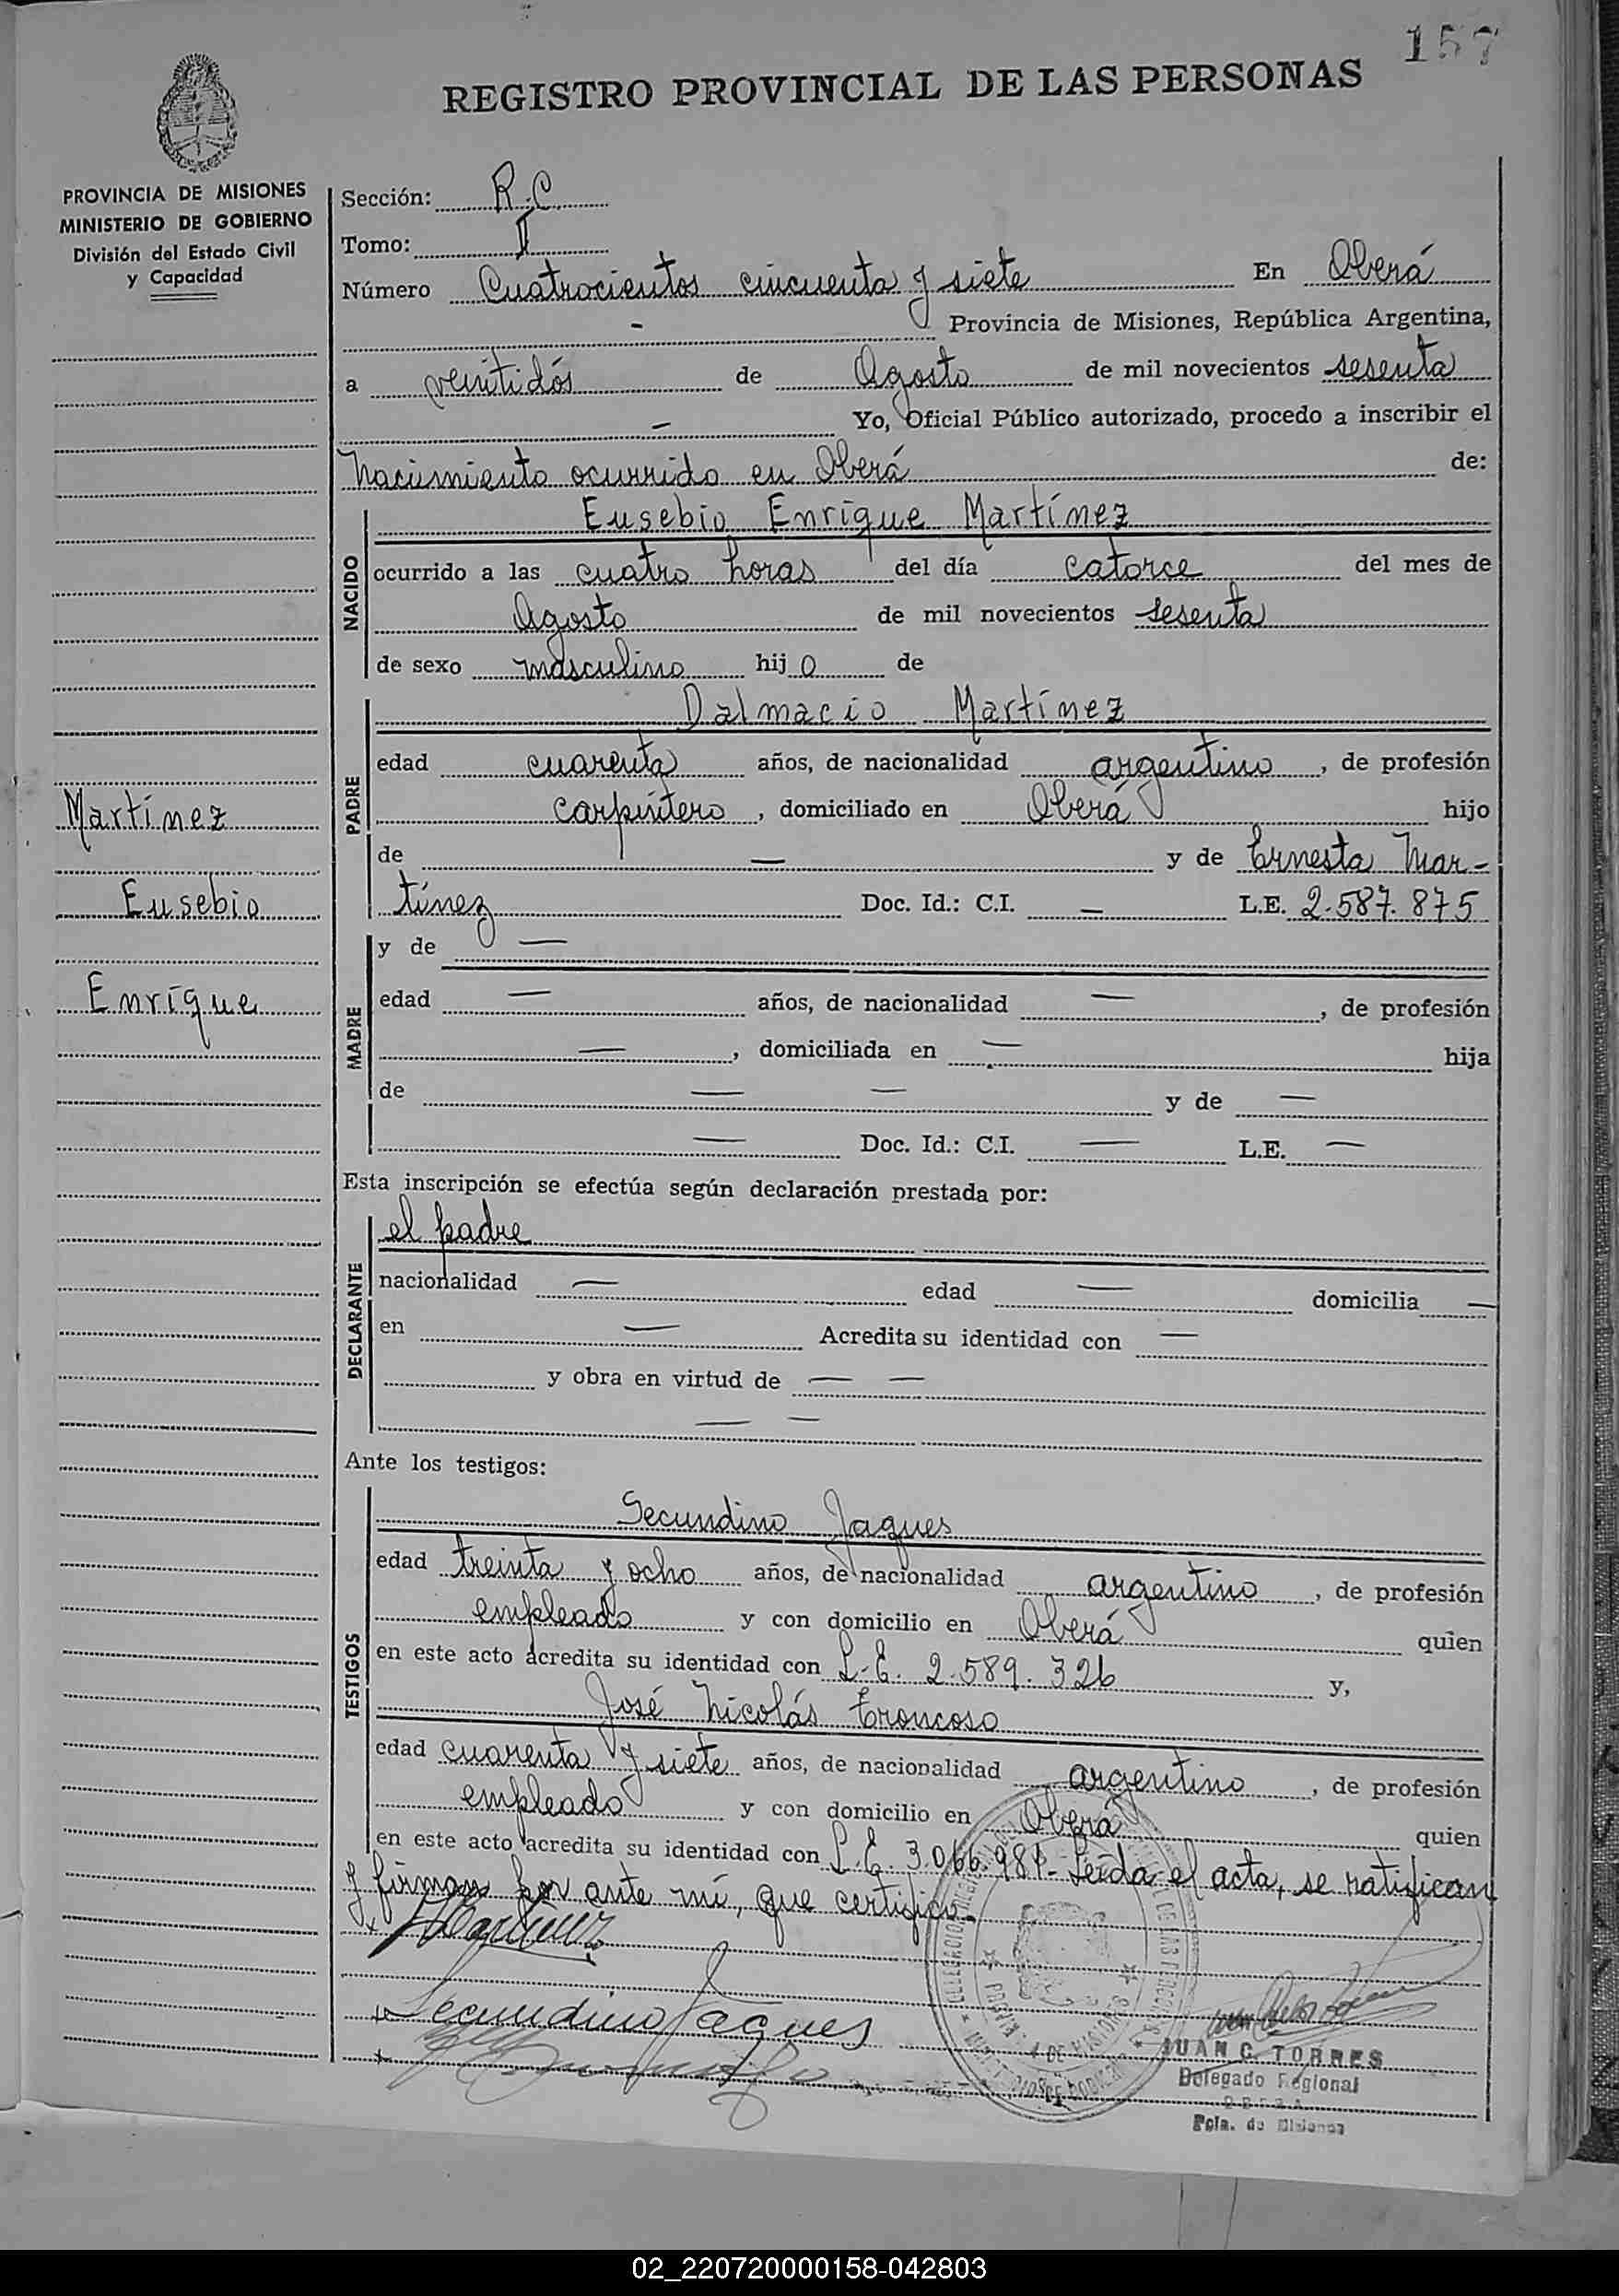 157
REGISTRO PROVINCIAL DE LAS PERSONAS
PROVINCIA DE MISIONES
MINISTERIO DE GOBIERNO
División del Estado Civil
y Capacidad
Martínez
Eusebio
Enrique
Sección: R.C.
Tomo: II
Número Cuatrocientos cincuenta y siete En Oberá
- Provincia de Misiones, República Argentina,
a veintidós de Agosto de mil novecientos sesenta
- Yo, Oficial Público autorizado, procedo a inscribir el
Nacimiento ocurrido en Oberá de:
NACIDO
Eusebio Enrique Martínez
ocurrido a las cuatro horas del día catorce del mes de
Agosto de mil novecientos sesenta
de sexo masculino hijo de
PADRE
Dalmacio Martínez
edad cuarenta años, de nacionalidad argentino, de profesión
carpintero, domiciliado en Oberá hijo
de — y de Ernesta Mar-
tínez Doc. Id.: C.I. — L.E. 2.587.875
MADRE
y de —
edad — años, de nacionalidad —, de profesión
—, domiciliada en — hija
de — — y de —
— Doc. Id.: C.I. — L.E. —
Esta inscripción se efectúa según declaración prestada por:
DECLARANTE
el padre
nacionalidad — edad — domicilia —
en — Acredita su identidad con —
y obra en virtud de — —
— —
Ante los testigos:
TESTIGOS
Secundino Jaques
edad treinta y ocho años, de nacionalidad argentino, de profesión
empleado y con domicilio en Oberá quien
en este acto acredita su identidad con L.E. 2.589.326 y,
José Nicolás Troncoso
edad cuarenta y siete años, de nacionalidad argentino, de profesión
empleado y con domicilio en Oberá quien
en este acto acredita su identidad con L.E. 3.066.981.- Leída el acta, se ratifican
y firman por ante mí, que certifico.
Martínez
Secundino Jaques
JUAN C. TORRES
Delegado Regional
OBERA
Pcia. de Misiones
02_220720000158-042803